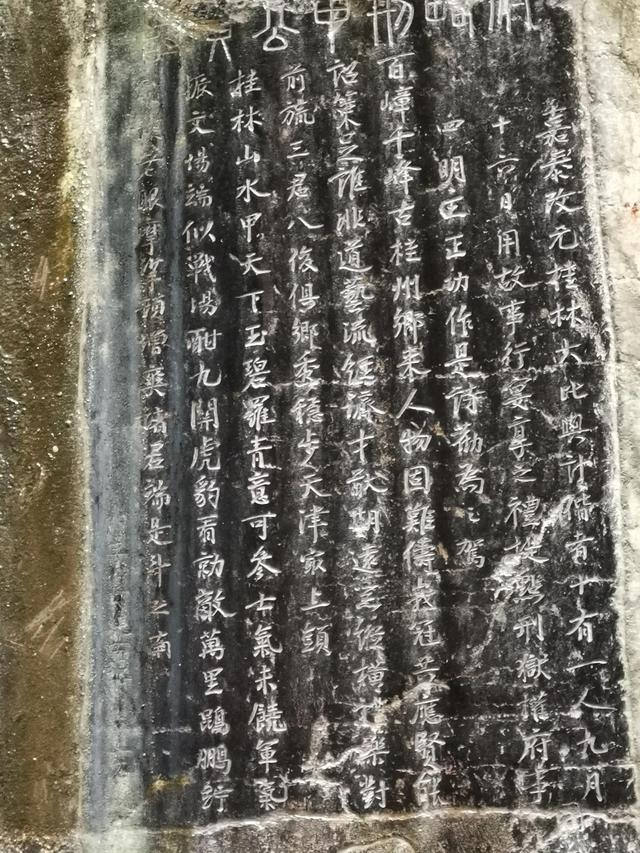 嘉泰改元桂林大比與計偕者十有一人九月
十六日用故事行宴享之禮提點刑獄權府事
四明王正功作是詩勸為之駕
百嶂千峰古桂州鄉來人物固難儔峩冠共應賢能
詔策足誰非道藝流經濟才猷期遠器縱橫禮樂對
前旒三君八俊俱鄉秀穩步天津最上頭
桂林山水甲天下玉碧羅青意可參士氣未饒軍氣
振文場端似戰場酣九關虎豹看勍敵萬里鵾鵬佇
老眼摩挲頓增爽諸君端是斗之南